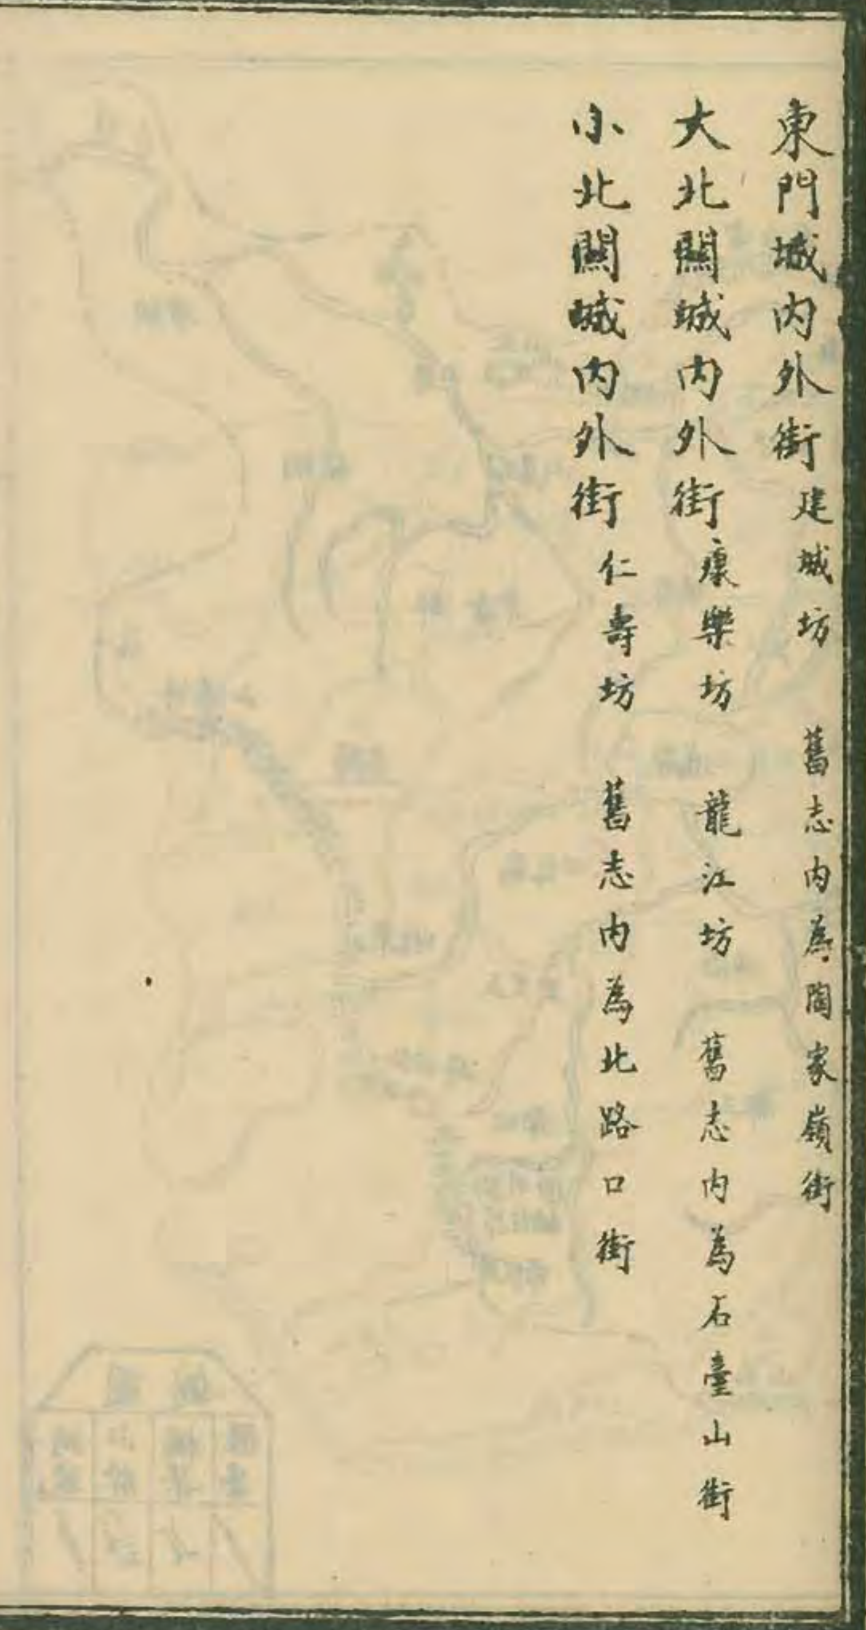 東門城内外街 建城坊 舊志内為陶家嶺街
大北關城内外街 康樂坊 龍江坊 舊志内為石臺山街
小北關城内外街 仁壽坊 舊志内為北路口街